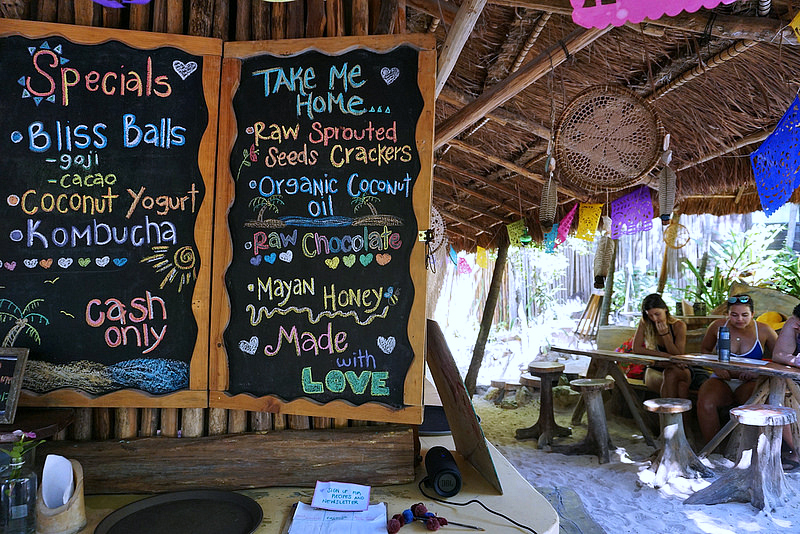 Specials
• Bliss Balls
- goji
- cacao
• Coconut Yogurt
• Kombucha
cash
only
TAKE ME
HOME...
• Raw Sprouted
Seeds Crackers
• Organic Coconut
oil
• Raw Chocolate
• Mayan Honey
Made
with
LOVE
SIGN UP FOR
RECIPES AND
NEWSLETTER
JBL